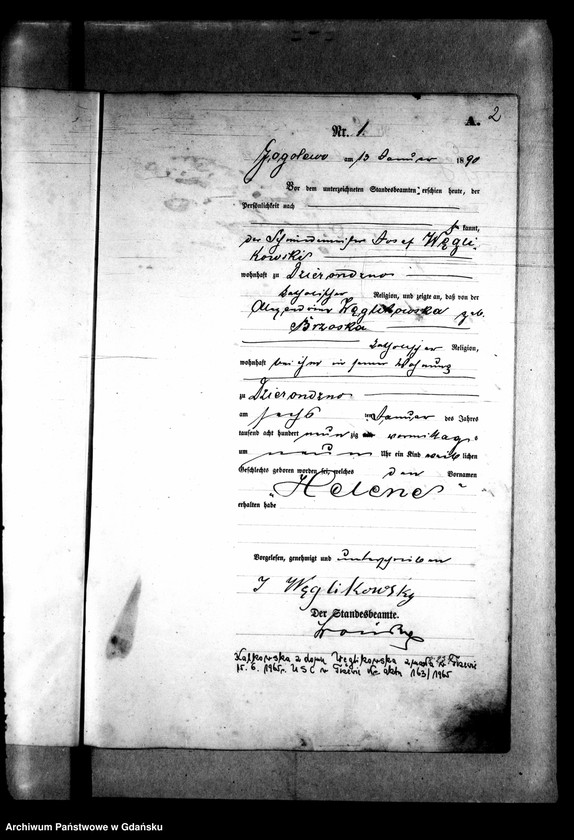 2
A.
Nr. 1.
Gogolewo am 13 Januar 1890
Vor dem unterzeichneten Standesbeamten erschien heute, der
Persönlichkeit nach
kannt,
der Schmiedemeister Josef Węgli-
kowski
wohnhaft zu Dzierondzno
katholischer Religion, und zeigte an, daß von der
Węglikowska geb.
Brzoska
katholischer Religion,
wohnhaft bei ihm in seiner Wohnung
zu Dzierondzno
am sechs ten Januar des Jahres
tausend acht hundert neunzig vormittags
um neun Uhr ein Kind weiblichen
Geschlechts geboren worden sei, welches den Vornamen
„Helene“
erhalten habe
Vorgelesen, genehmigt und unterschrieben
J Węglikowsky
Der Standesbeamte.
Kalkowska z domu Węglikowska zmarła w Tczewie
15. 6. 1965r. USC w Tczewie Nr. aktu 163/1965
Archiwum Państwowe w Gdańsku